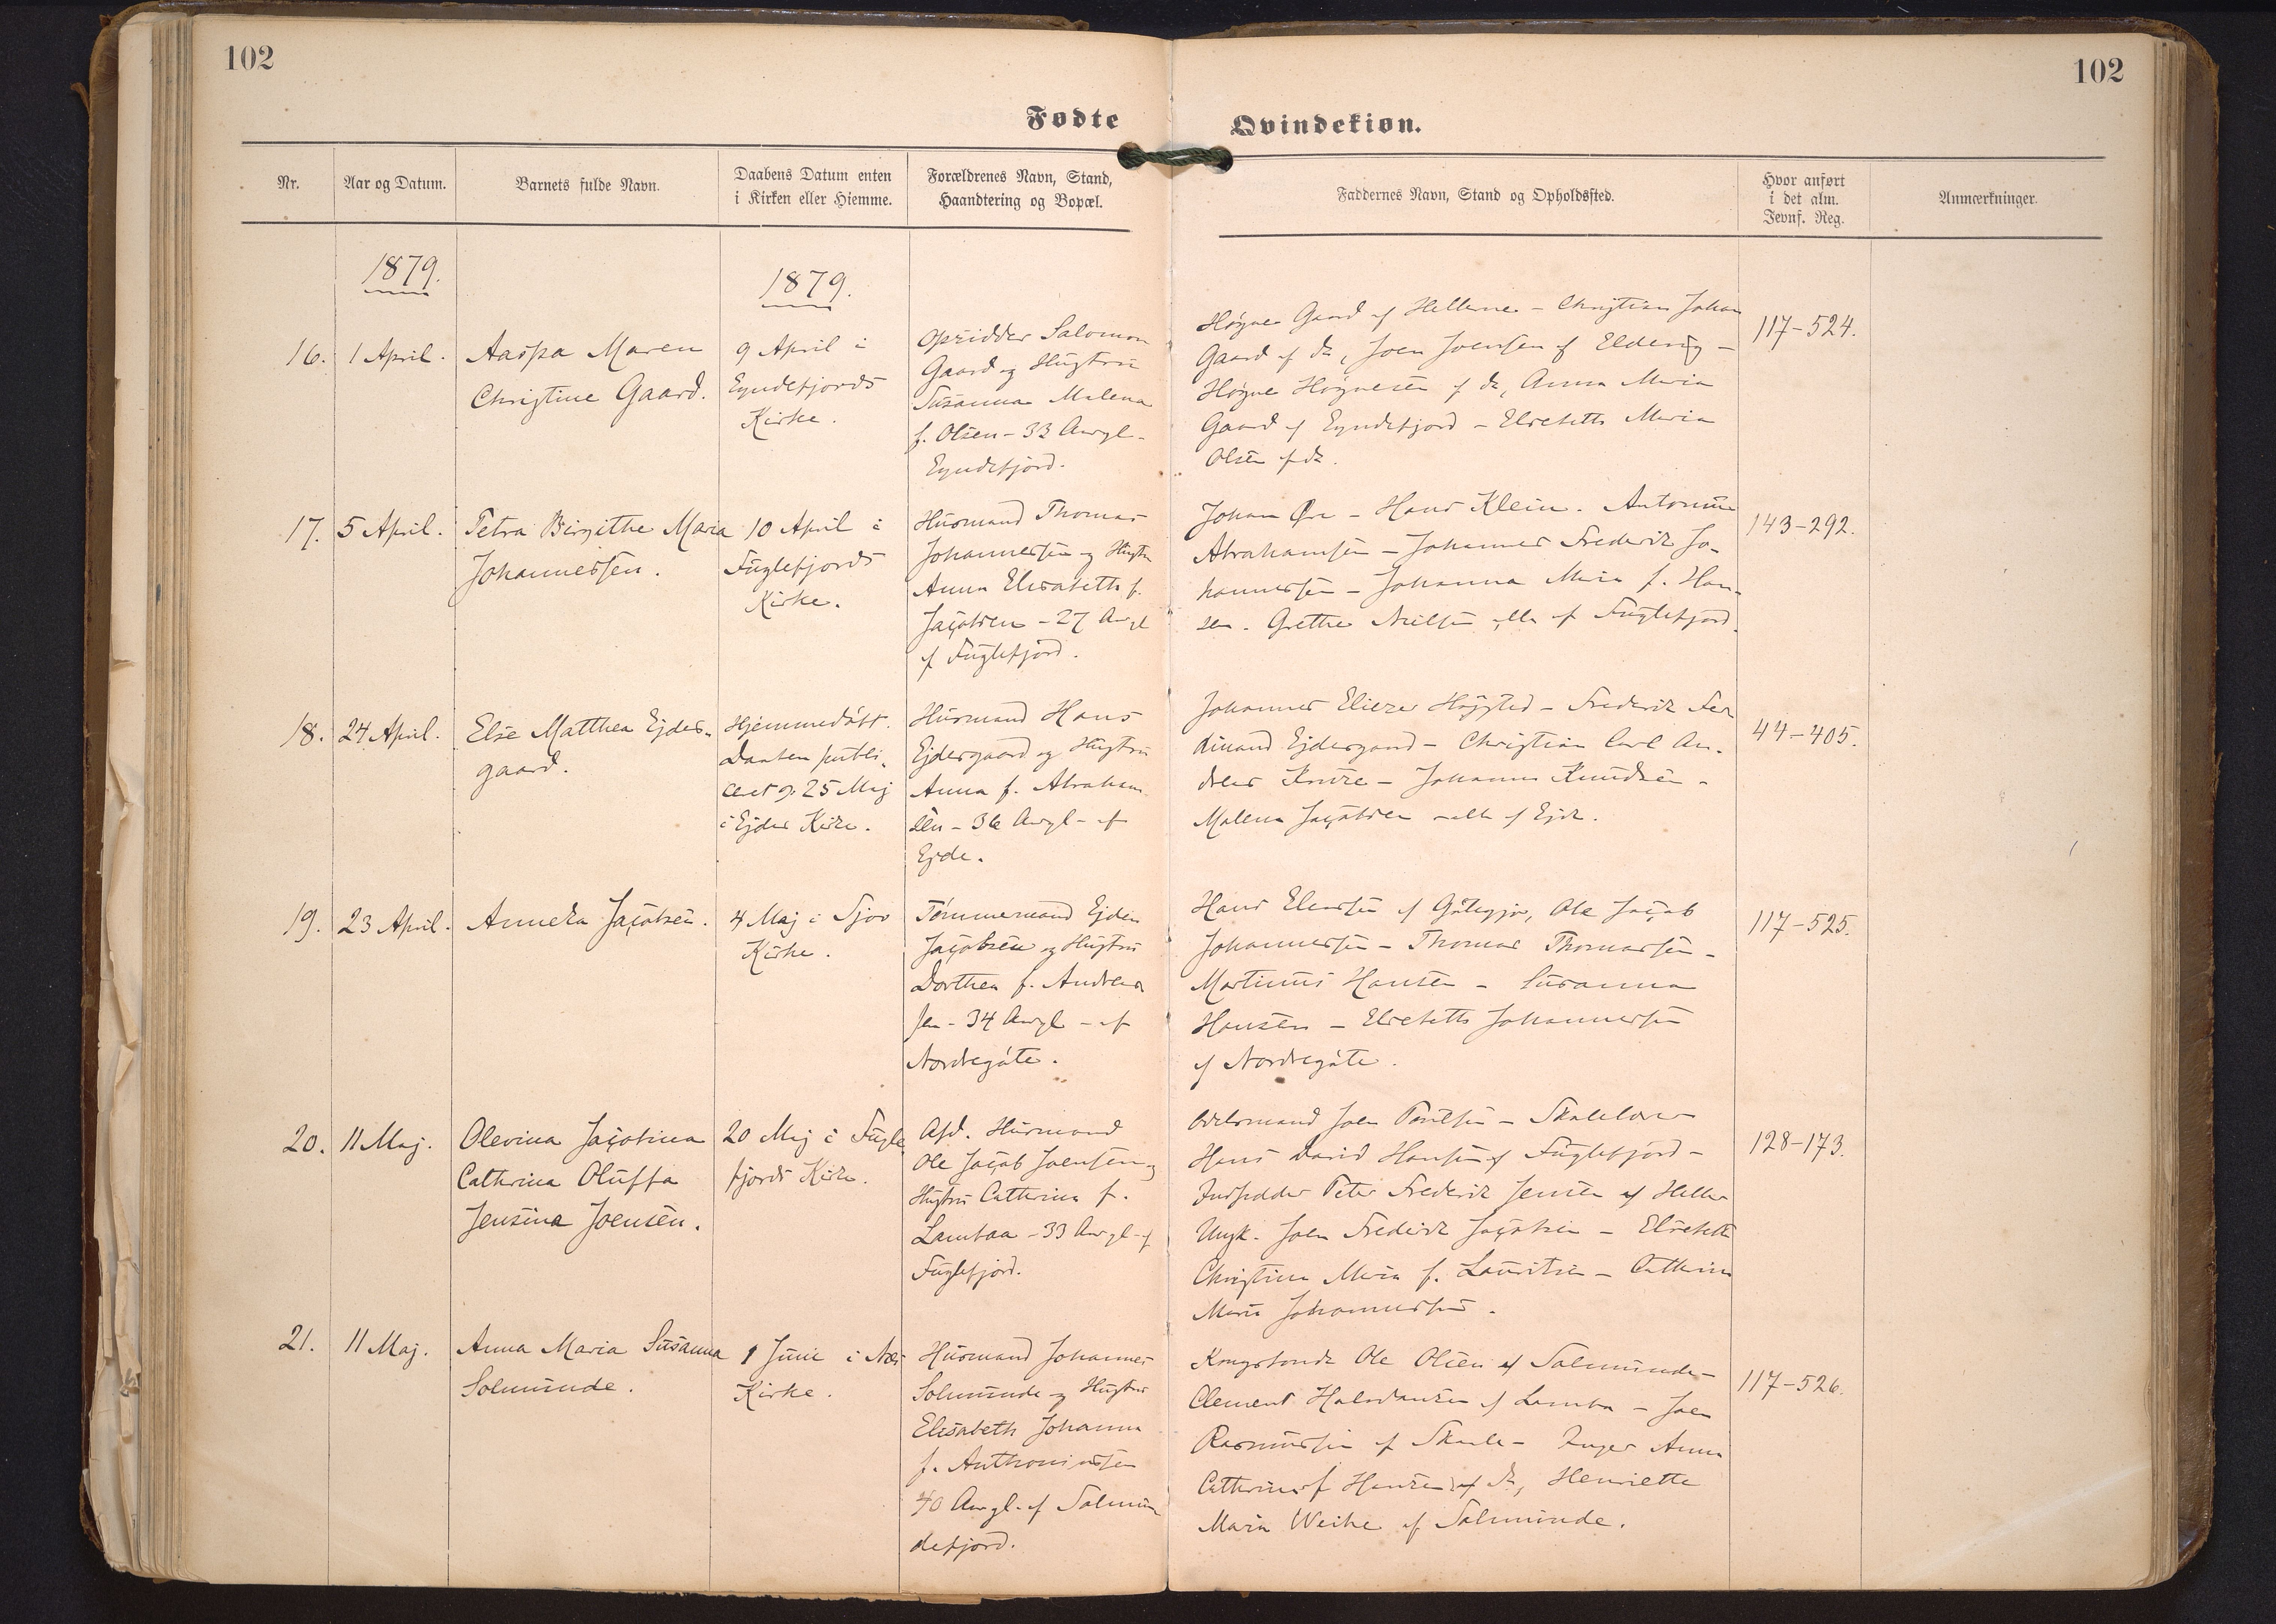 102
102
Fødte
Qvindekiøn.
Nr.
Aar og Datum.
Barnets fulde Navn.
Daabens Datum enten
i Kirken eller Hiemme.
Forældrenes Navn, Stand,
Haandtering og Bopæl.
Faddernes Navn, Stand og Opholdssted.
Hvor anført
i det alm.
Jevnf. Reg.
Anmærkninger.
1879.
1879.
16.
1 April.
Aaspa Maren
Christine Gaard.
9 April i
Eyndefjords
Kirke.
Opsidder Salomon
Gaard og Hustru
Susanna Malena
f. Olsen - 33 Aar gl -
Eyndefjord.
Høgne Gaard af Hellerne - Christian Johan
Gaard af do, Joen Joensen af Eldevig -
Høgne Høgnesen af do, Anna Maria
Gaard af Eyndefjord - Elsebeth Maria
Olsen af do.
117-524.
17.
5 April.
Petra Birgithe Maria
Johannessen.
10 April i
Fuglefjords
Kirke.
Husmand Thomas
Johannessen og Hustru
Anna Elisabeth f.
Jacobsen - 27 Aar gl
af Fuglefjord.
Johan Øre - Hans Klein. Antonine
Abrahamsen - Johannes Frederik Jo-
hannessen - Johanna Maria f. Han-
sen. Grethe Nielsen alle af Fuglefjord.
143-292.
18.
24 April.
Else Matthea Ejdes-
gaard.
Hjemmedøbt.
Daaben publi-
ceret d. 25 Maj
i Ejde Kirke.
Husmand Hans
Ejdesgaard og Hustru
Anna f. Abraham-
sen - 36 Aar gl - af
Ejde.
Johannes Eliezer Højsted - Frederik Fer
dinand Ejdesgaard - Christian Carl An-
dreas Kruse - Johanne Knudsen -
Malena Jacobsen - alle af Ejde.
44-405.
19.
23 April.
Anneka Jacobsen.
4 Maj i Sjov
Kirke.
Tømmermand Ejdin
Jacobsen og Hustru
Dorthea f. Andrea
sen - 34 Aar gl - af
Nordregøte.
Hans Eliassen af Gøtegjov, Ole Jacob
Johannessen - Thomas Thomassen -
Martinus Hansen - Susanna
Hansen - Elsebeth Johannessen
af Nordregøte.
117-525.
20.
11 Maj.
Olevina Jacobina
Cathrina Oluffa
Jensine Joensen.
20 Maj i Fugle
fjords Kirke.
Afd. Husmand
Ole Jacob Joensen og
Hustru Cathrina f.
Lambaa - 33 Aar gl - af
Fuglefjord.
Joen Poulsen - Skolelærer
Hans David Hansen af Fuglefjord -
Peter Frederik Jensen af Helle
Ungk. Joen Frederik Jacobsen - Elsebeth
Christina Maria f. Lauritsen - Cathrina
Maria Johannessen.
128-173.
21.
11 Maj.
Anna Maria Susanna
Solmunde.
1 Juni i Næs
Kirke.
Husmand Johannes
Solmunde og Hustru
Elisabeth Johanna
f. Anthoniussen
40 Aar gl. af Solmun
defjord.
Kongsbonde Ole Olsen af Solmunde -
Clement Halvdansen af Lamba - Joen
Rasmussen af Skaale - Inger Anna
Cathrine f Hansen af do, Henriette
Maria Weihe af Solmunde.
117-526.